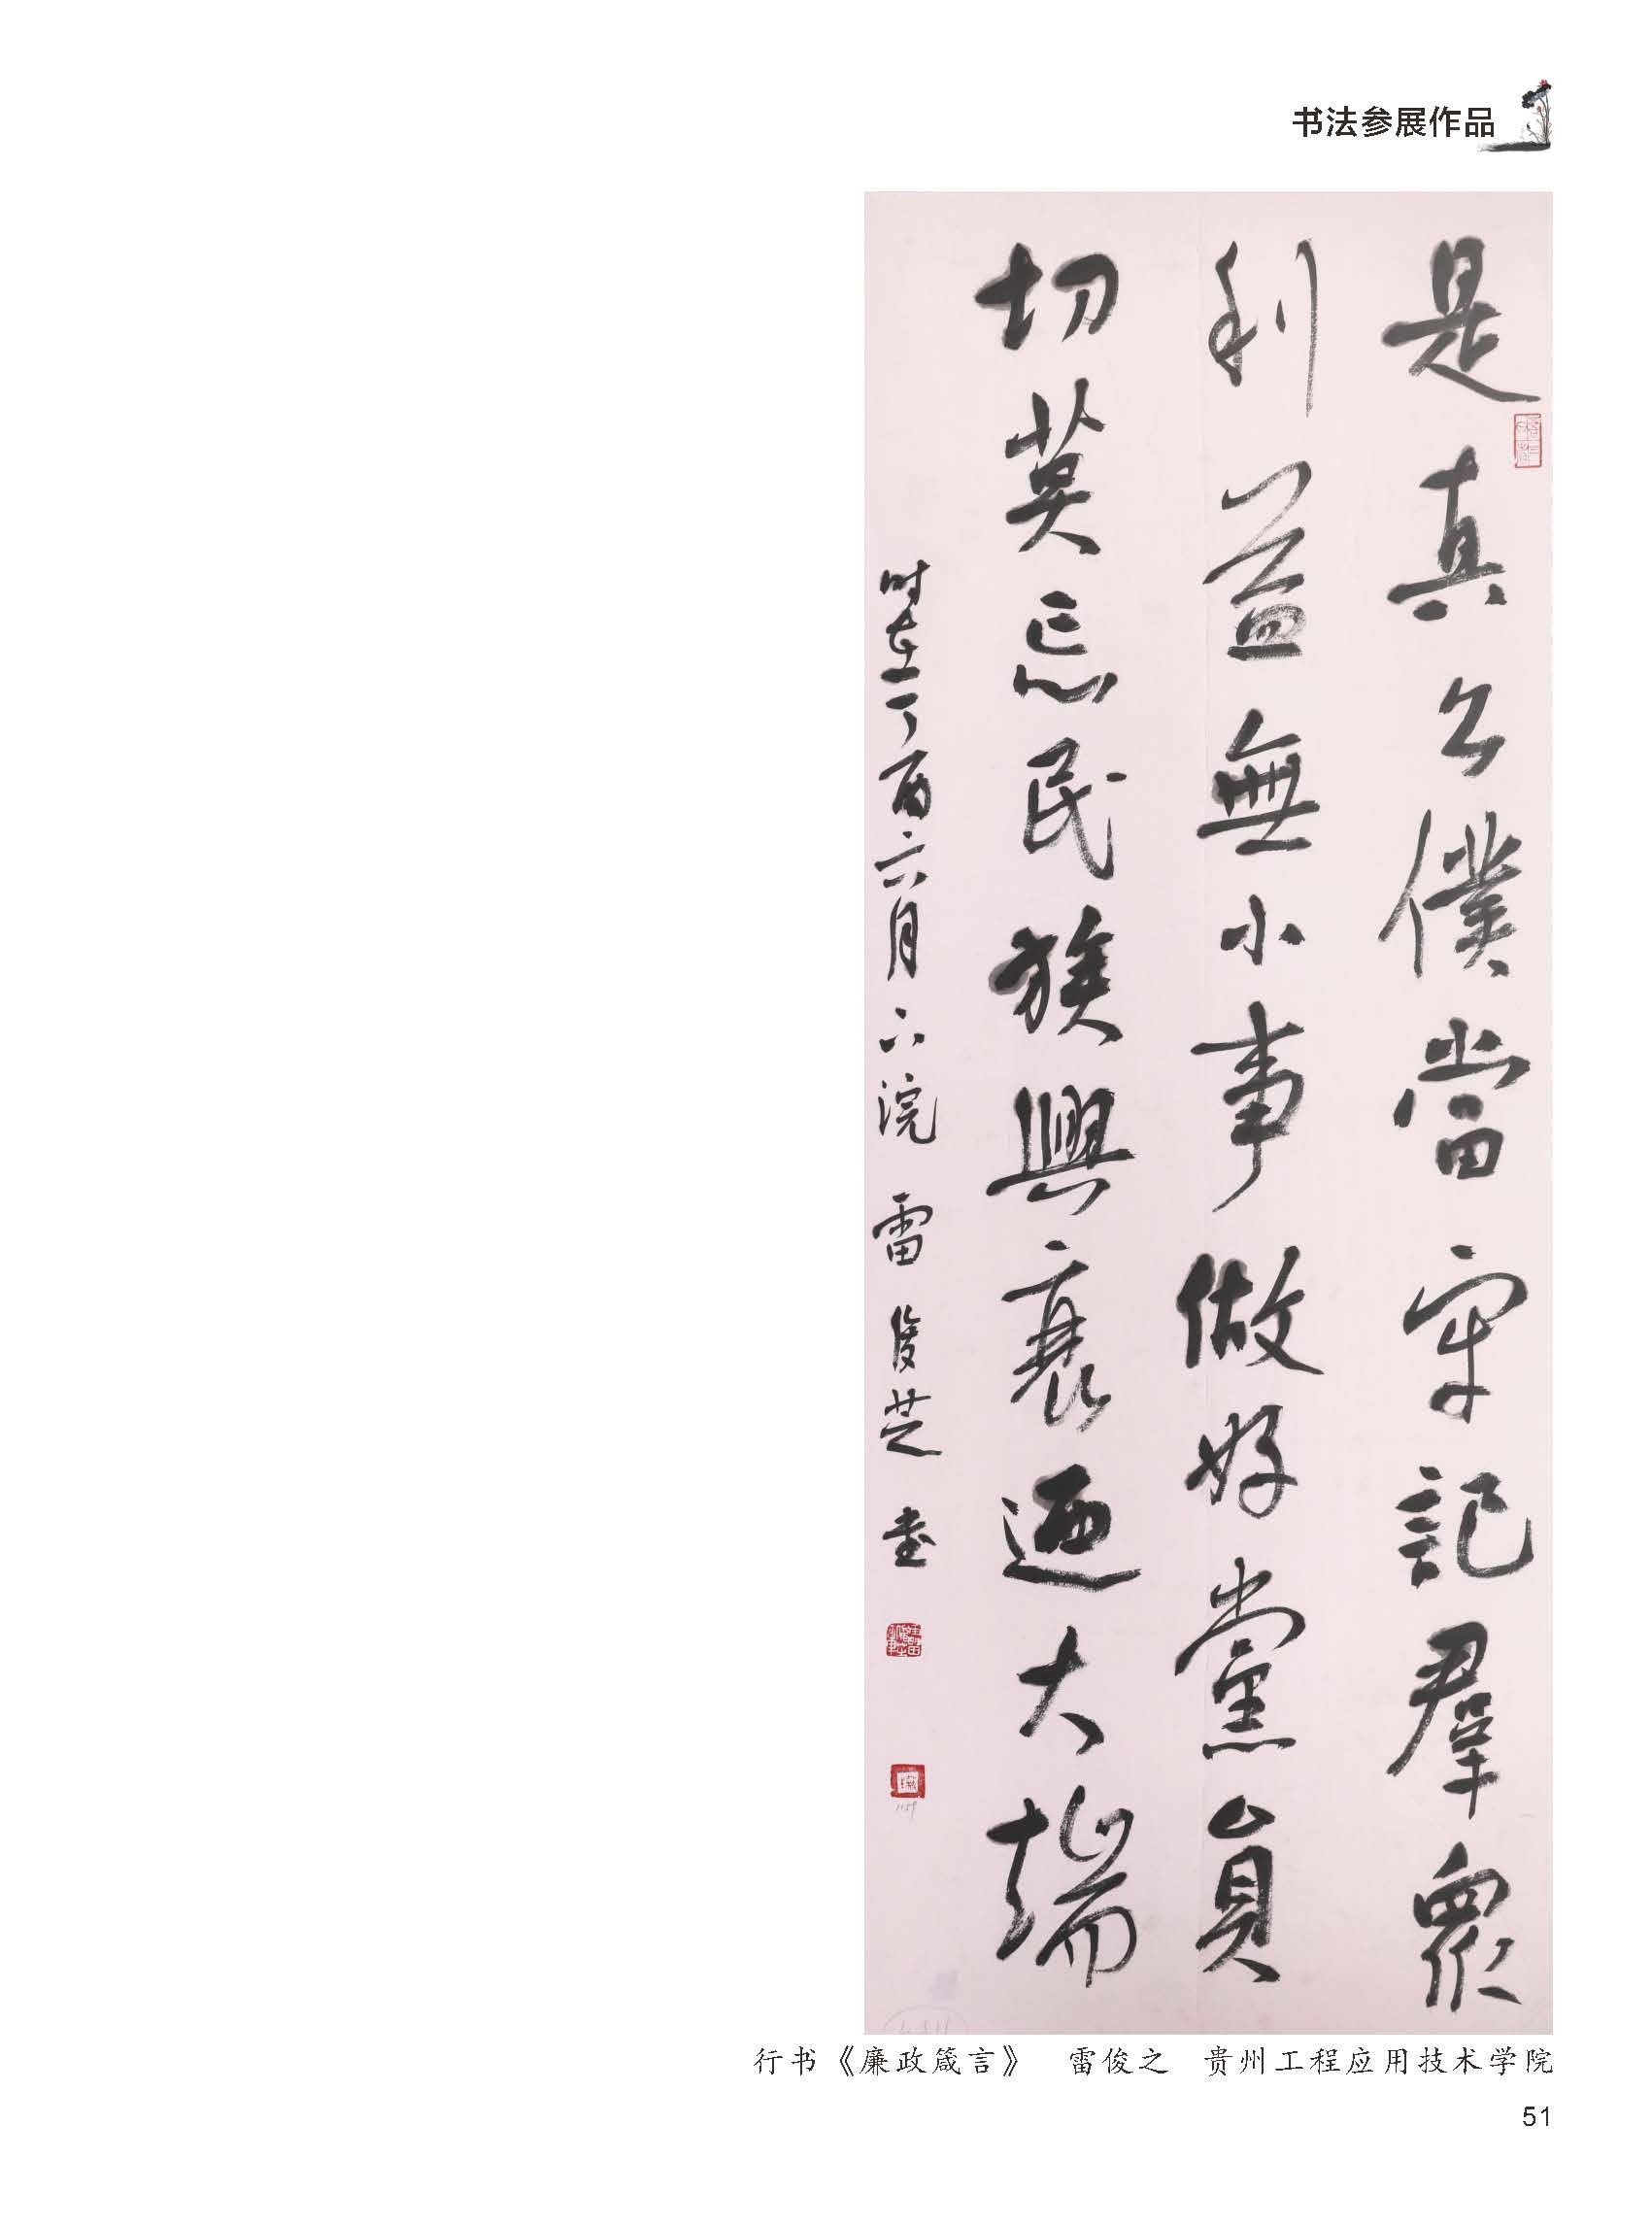 书法参展作品
是真公僕當牢記羣衆
利益無小事做好黨員
切莫忘民族興衰迺大端
时在丁酉六月六浣 雷俊芝書
行书《廉政箴言》 雷俊之 贵州工程应用技术学院
51